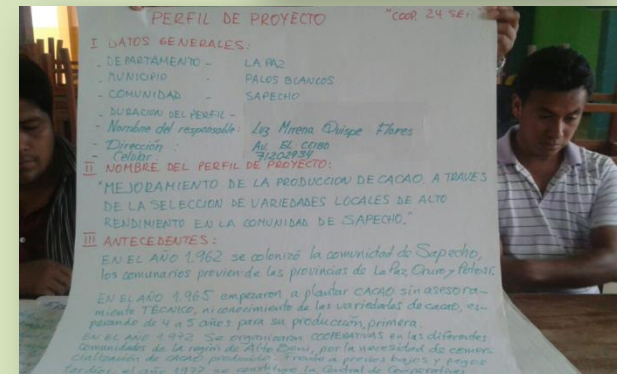 PERFIL DE PROYECTO "COOP. 24 SE
I DATOS GENERALES:
- DEPARTAMENTO - LA PAZ
- MUNICIPIO - PALOS BLANCOS
- COMUNIDAD - SAPECHO
- DURACION DEL PERFIL -
- Nombre del responsable: Luz Mirena Quispe Flores
- Dirección : Av. EL CEIBO
- Celular : 71202934
II NOMBRE DEL PERFIL DE PROYECTO:
"MEJORAMIENTO DE LA PRODUCCION DE CACAO, A TRAVES
DE LA SELECCION DE VARIEDADES LOCALES DE ALTO
RENDIMIENTO EN LA COMUNIDAD DE SAPECHO."
III ANTECEDENTES:
EN EL AÑO 1.962 se colonizó la comunidad de Sapecho,
los comunarios provien de las provincias de La Paz, Oruro y Potosí.
EN EL AÑO 1.965 empezaron a plantar CACAO sin asesora-
miento TÉCNICO, ni conocimiento de las variedades de cacao, es-
perando de 4 a 5 años para su producción primera.
EN EL AÑO 1.972 Se organizaron COOPERATIVAS en las diferentes
comunidades de la región de Alto Beni, por la necesidad de comer-
cialización de CACAO producido frente a precios bajos y pagos
el año 1977 se constituye la Central de Cooperativas